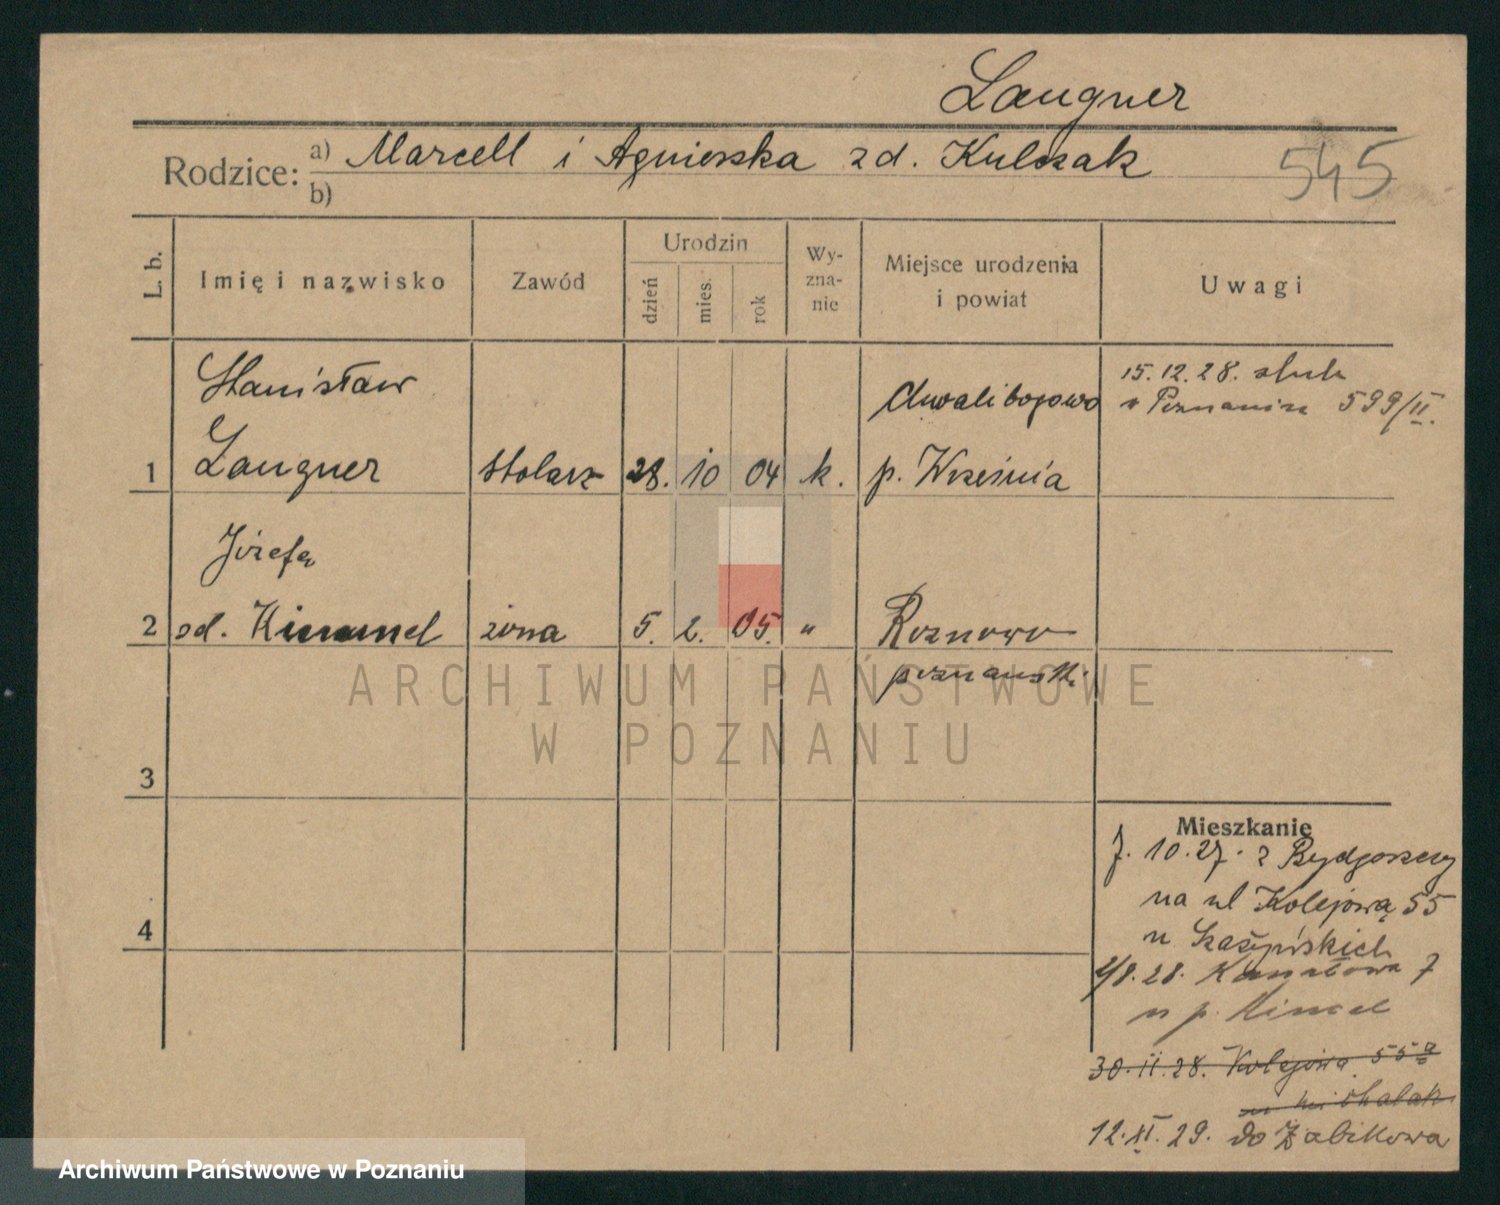 Langner
Rodzice: a) Marcell i Agnieszka zd. Kulczak
b)
545
L. b.
Imię i nazwisko
Zawód
Urodzin
dzień
mies.
rok
Wy-
zna-
nie
Miejsce urodzenia
i powiat
Uwagi
Stanisław
Chwalibogowo
15.12.28. ślub
w Poznaniu 599/II.
1 Langner stolarz 28. 10 04 k. p. Września
Józefa
2 zd. Kimmel żona 5. 2. 05. " Roznowo
poznański
ARCHIWUM PAŃSTWOWE
W POZNANIU
3
4
Mieszkanie
7. 10.27. z Bydgoszczy
na ul Kolejową 55
u
28. 7
u p.
30.11.28. Kolejowa 55a
u Michalak
12.XI.29. do Żabikowa
Archiwum Państwowe w Poznaniu